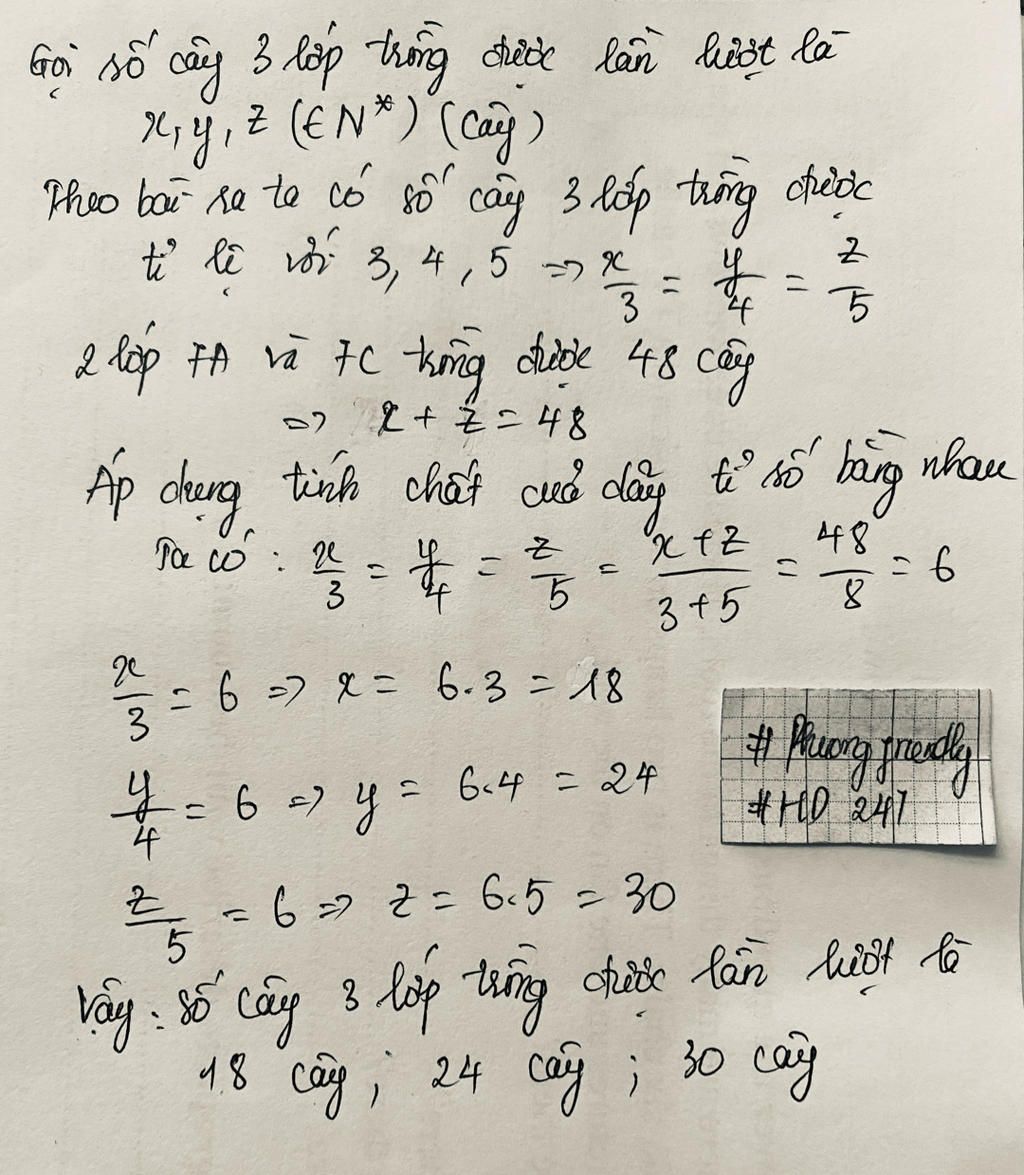 Gọi số cây 3 lớp trồng được lần lượt là
x, y, z (∈ N*) (cây)
Theo bài ra ta có số cây 3 lớp trồng được
tỉ lệ với 3, 4, 5 => x/3 = y/4 = z/5
2 lớp 7A và 7C trồng được 48 cây
=> x + z = 48
Áp dụng tính chất của dãy tỉ số bằng nhau
Ta có : x/3 = y/4 = z/5 = (x+z)/(3+5) = 48/8 = 6
x/3 = 6 => x = 6.3 = 18
y/4 = 6 => y = 6.4 = 24
z/5 = 6 => z = 6.5 = 30
# Phuong friendly
# HD 247
Vậy : số cây 3 lớp trồng được lần lượt là
18 cây ; 24 cây ; 30 cây